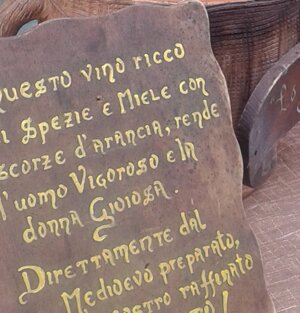 Questo vino ricco
di Spezie e Miele con
scorze d'arancia, rende
l'uomo Vigoroso e la
donna Gioiosa.
Direttamente dal
Medioevo preparato,
raffinato